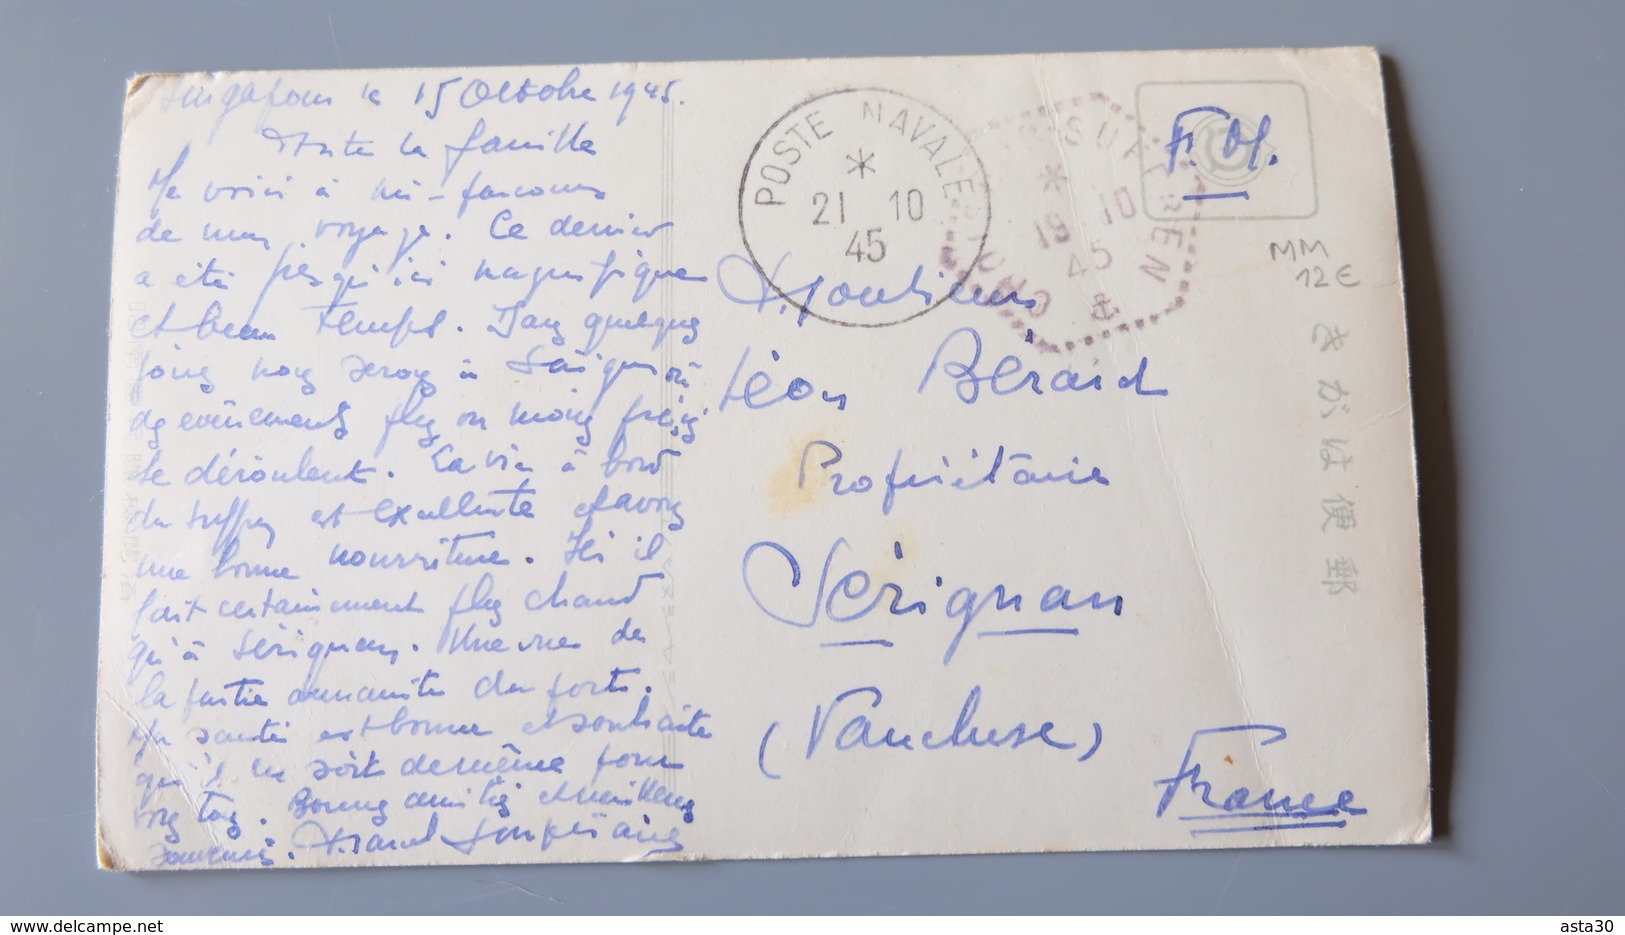 Singapour le 15 Octobre 1945.
Toute la famille
Me voici à mi-parcours
de mon voyage. Ce dernier
a été jusqu'ici magnifique
et beau temps. Dans quelques
jours nous serons à Saïgon où
des évènements plus ou moins précis
se déroulent. La vie à bord
du Suffren est excellente et avons
une bonne nourriture. Ici il
fait certainement plus chaud
qu'à Sérignan. Une vue de
la partie annamite du port.
Ma santé est bonne et souhaite
qu'il en soit de même pour
vous tous. Bonnes amitiés et meilleurs
souvenirs. Marcel
POSTE NAVALE
*
21 10
45
CROISEUR SUFFREN
*
19 10
45
F.M.
MM
12€
Monsieur
Léon Bérard
Propriétaire
Sérignan
(Vaucluse)
France
きがは便郵
asta30